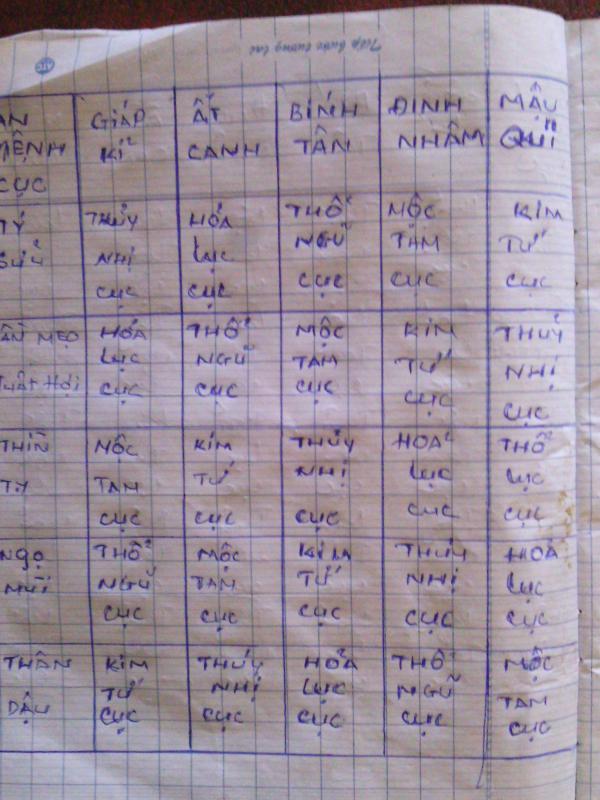 Tiếp bước tương lai
ATC
AN GIÁP ẤT BÍNH ĐINH MẬU
MỆNH KỈ CANH TÂN NHÂM QUÍ
CỤC
TÝ THỦY HỎA THỔ MỘC KIM
SỬU NHỊ LỤC NGŨ TAM TỨ
CỤC CỤC CỤC CỤC CỤC
DẦN MẸO HỎA THỔ MỘC KIM THỦY
LỤC NGŨ TAM TỨ NHỊ
TUẤT HỢI CỤC CỤC CỤC CỤC CỤC
THÌN MỘC KIM THỦY HOẢ THỔ
TỴ TAM TỨ NHỊ LỤC LỤC
CỤC CỤC CỤC CỤC CỤC
NGỌ THỔ MỘC KIM THỦY HOẢ
MÙI NGŨ TAM TỨ NHỊ LỤC
CỤC CỤC CỤC CỤC CỤC
THÂN KIM THỦY HỎA THỔ MỘC
TỨ NHỊ LỤC NGŨ TAM
DẬU CỤC CỤC CỤC CỤC CỤC